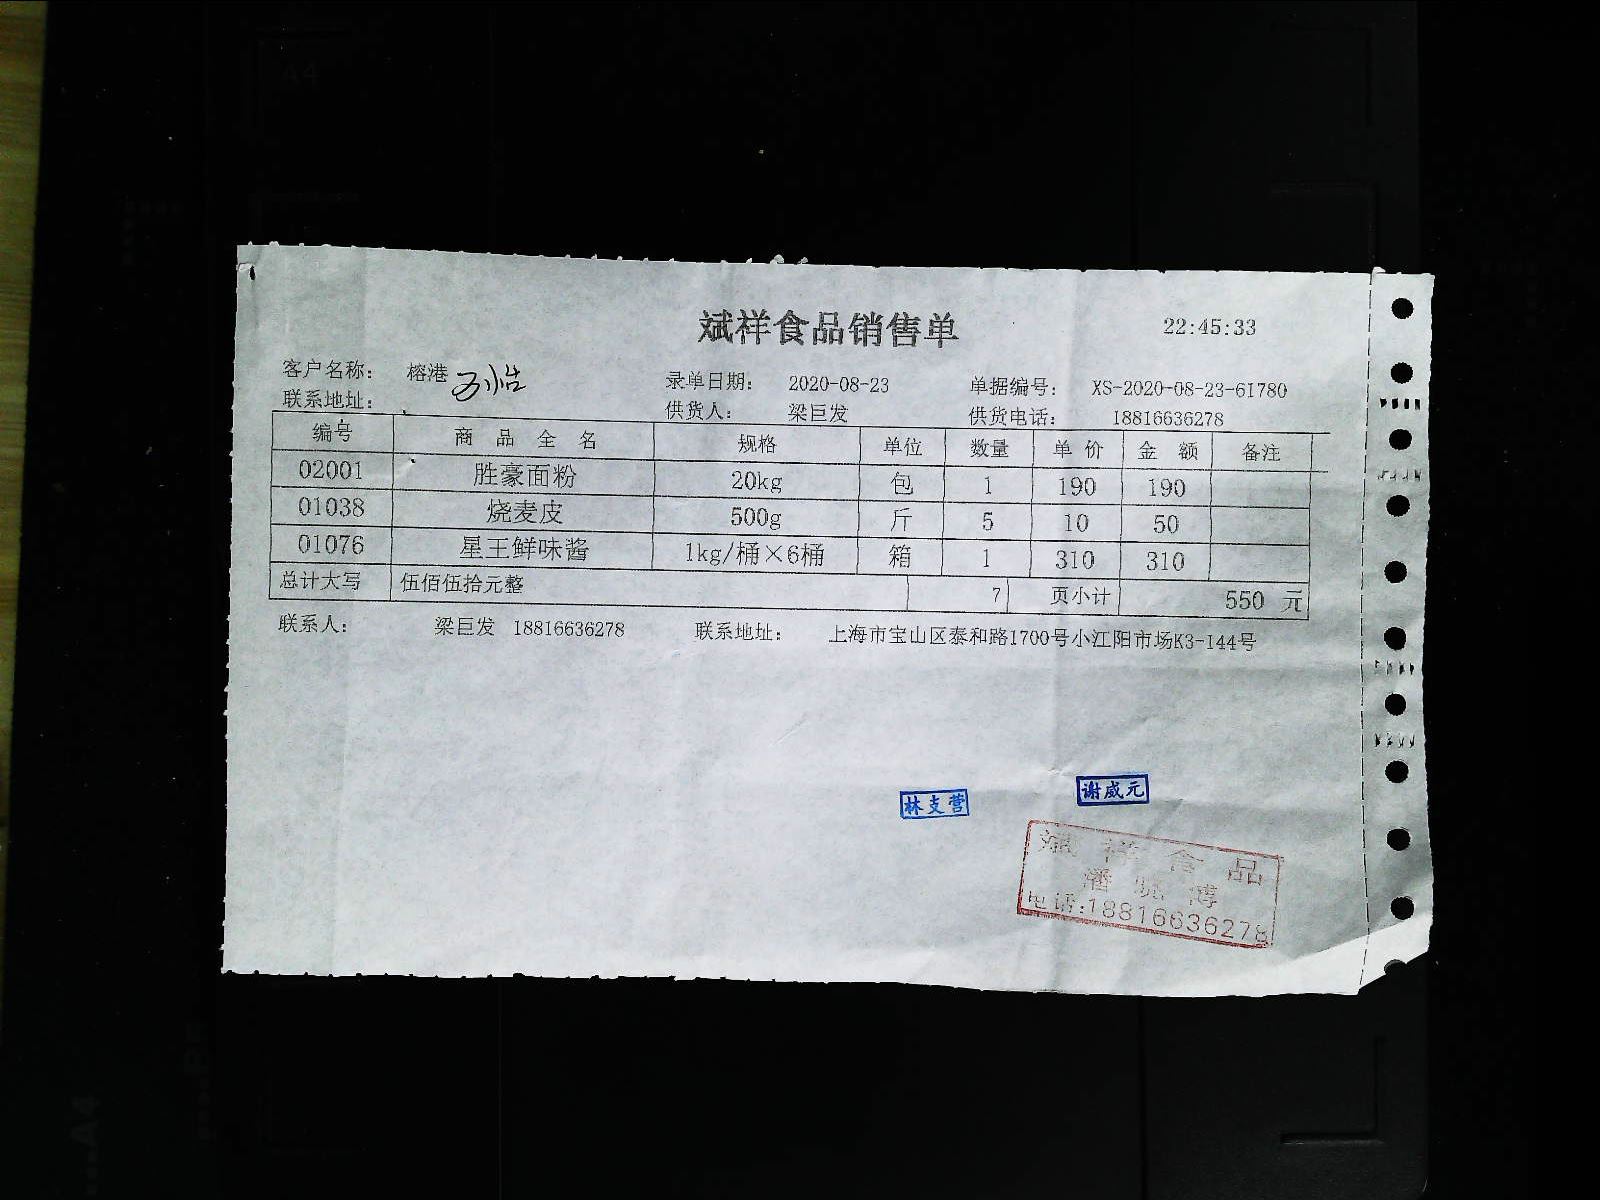 斌祥食品销售单 22:45:33
客户名称： 榕港 录单日期： 2020-08-23 单据编号： XS-2020-08-23-61780
联系地址： 供货人： 梁巨发 供货电话： 18816636278
编号 商品全名 规格 单位 数量 单价 金额 备注
02001 胜豪面粉 20kg 包 1 190 190
01038 烧麦皮 500g 斤 5 10 50
01076 星王鲜味酱 1kg/桶×6桶 箱 1 310 310
总计大写 伍佰伍拾元整 7 页小计 550 元
联系人： 梁巨发 18816636278 联系地址： 上海市宝山区泰和路1700号小江阳市场K3-144号
林支营 谢威元
斌祥食品
电话:18816636278
A4
A4